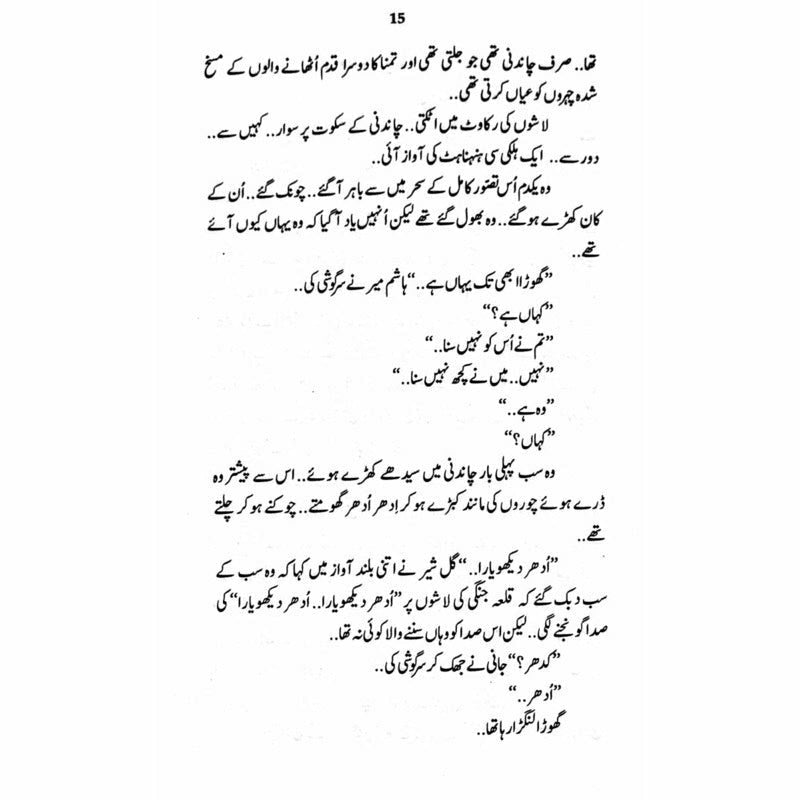 15
تھا.. صرف چاندنی تھی جو جلتی تھی اور تمنا کا دوسرا قدم اُٹھانے والوں کے مسخ
شدہ چہروں کو عیاں کرتی تھی..
لاشوں کی رکاوٹ میں اٹکتی.. چاندنی کے سکوت پر سوار.. کہیں سے..
دور سے.. ایک ہلکی سی ہنہناہٹ کی آواز آئی..
وہ یکدم اُس تصّورِ کامل کے سحر میں سے باہر آ گئے.. چونک گئے.. اُن کے
کان کھڑے ہو گئے.. وہ بھول گئے تھے لیکن اُنہیں یاد آ گیا کہ وہ یہاں کیوں آئے
تھے..
”گھوڑا ابھی تک یہاں ہے..“ ہاشم میر نے سرگوشی کی..
”کہاں ہے؟“
”تم نے اُس کو نہیں سنا..“
”نہیں.. میں نے کچھ نہیں سنا..“
”وہ ہے..“
”کہاں؟“
وہ سب پہلی بار چاندنی میں سیدھے کھڑے ہوئے.. اس سے پیشتر وہ
ڈرے ہوئے چوروں کی مانند کبڑے ہو کر اِدھر اُدھر گھومتے.. چوکنے ہو کر چلتے
تھے..
”اُدھر دیکھو یارا..“ گل شیر نے اتنی بلند آواز میں کہا کہ وہ سب کے
سب دبک گئے کہ قلعہ جنگی کی لاشوں پر ”اُدھر دیکھو یارا.. اُدھر دیکھو یارا“ کی
صدا گونجنے لگی.. لیکن اس صدا کو وہاں سننے والا کوئی نہ تھا..
”کدھر؟“ جانی نے جھک کر سرگوشی کی..
”اُدھر..“
گھوڑا لنگڑا رہا تھا..